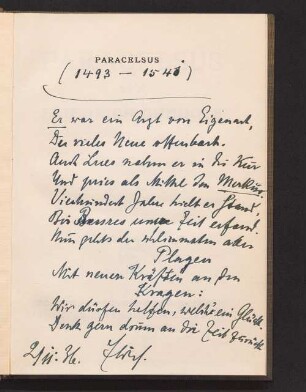 PARACELSUS
(1493 – 1541)
Er war ein Arzt von Eigenart,
Der vieles Neue offenbart.
Auch Lues nahm er in die Kur
Und pries als Mittel den Merkur.
Vierhundert Jahre hielt er Stand,
Bis Bessres unsre Zeit erfand.
Nun gehts der schlimmsten aller
Plagen
Mit neuen Kräften an den
Kragen:
Wir dürfen helfen, welch ein Glück
Denk gern drum an die Zeit zurück